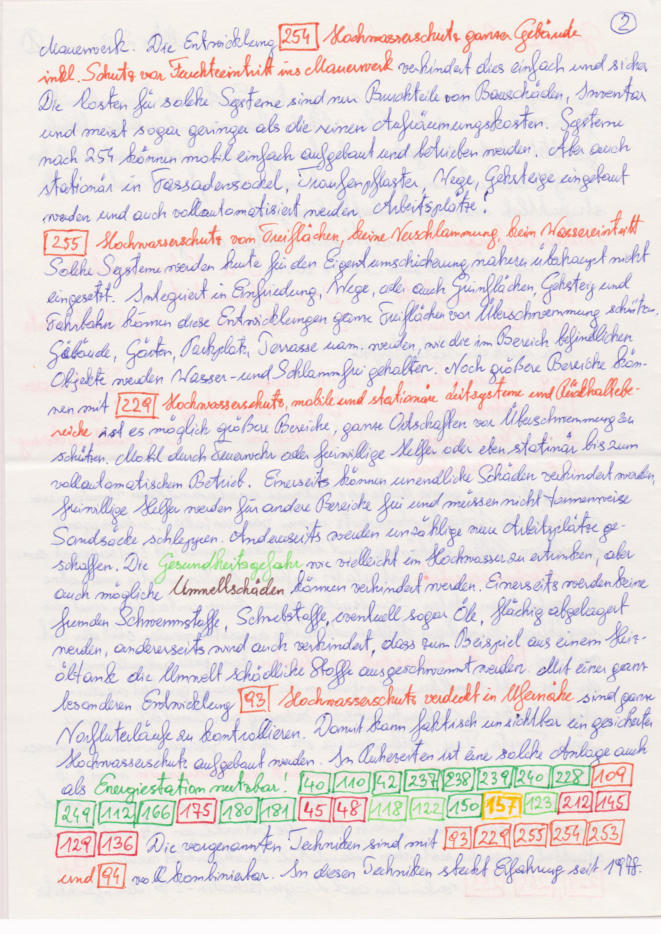 2
Mauerwerk. Die Entwicklung 254 Hochwasserschutz ganzer Gebäude
inkl. Schutz vor Feuchteeintritt ins Mauerwerk verhindert dies einfach und sicher
Die Kosten für solche Systeme sind nur Bruchteile von Bauschäden, Inventar
und meist sogar geringer als die reinen Aufräumungskosten. Systeme
nach 254 können mobil einfach aufgebaut und betrieben werden. Aber auch
stationär in Fassadensockel, Traufenpflaster, Wege, Gehsteige eingebaut
werden und auch vollautomatisiert werden. Arbeitsplätze!
255 Hochwasserschutz von Freiflächen, keine Verschlammung, kein Wassereintritt
Solche Systeme werden heute für den Eigentumssicherung nahezu überhaupt nicht
eingesetzt. Integriert in Einfriedung, Wege, oder auch Grünflächen, Gehsteig und
Fahrbahn können diese Entwicklungen ganze Freiflächen vor Überschwemmung schützen.
Gebäude, Gärten, Parkplatz, Terrasse usw. werden, wie die im Bereich befindlichen
Objekte werden Wasser- und Schlammfrei gehalten. Noch größere Bereiche kön-
nen mit 229 Hochwasserschutz, mobile und stationäre Leitsysteme und Rückhaltebe-
reiche ist es möglich größere Bereiche, ganze Ortschaften vor Überschwemmung zu
schützen. Mobil durch Feuerwehr oder freiwillige Helfer oder eben stationär bis zum
vollautomatischen Betrieb. Einerseits können unendliche Schäden verhindert werden,
freiwillige Helfer werden für andere Bereiche frei und müssen nicht tonnenweise
Sandsäcke schleppen. Andererseits werden unzählige neue Arbeitsplätze ge-
schaffen. Die Gesundheitsgefahr, wie vielleicht im Hochwasser zu ertrinken, aber
auch mögliche Umweltschäden können verhindert werden. Einerseits werden keine
fremden Schwemmstoffe, Schwebstoffe, eventuell sogar Öle, flächig abgelagert
werden, andererseits wird auch verhindert, dass zum Beispiel aus einem Heiz-
öltank die Umwelt schädliche Stoffe ausgeschwemmt werden. Mit einer ganz
besonderen Entwicklung 93 Hochwasserschutz verdeckt in Ufernähe sind ganze
Vorfluterläufe zu kontrollieren. Damit kann faktisch unsichtbar ein gesicherter
Hochwasserschutz aufgebaut werden. In Ruhezeiten ist eine solche Anlage auch
als Energiestation nutzbar! 40 110 42 237 238 239 240 228 109
249 112 166 175 180 181 45 48 118 122 150 157 123 212 145
129 136 Die vorgenannten Techniken sind mit 93 229 255 254 253
und 94 voll kombinierbar. In diesen Techniken steckt Erfahrung seit 1978.